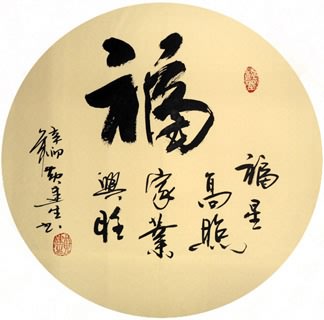 福
福星
高照
家業
興旺
辛卯